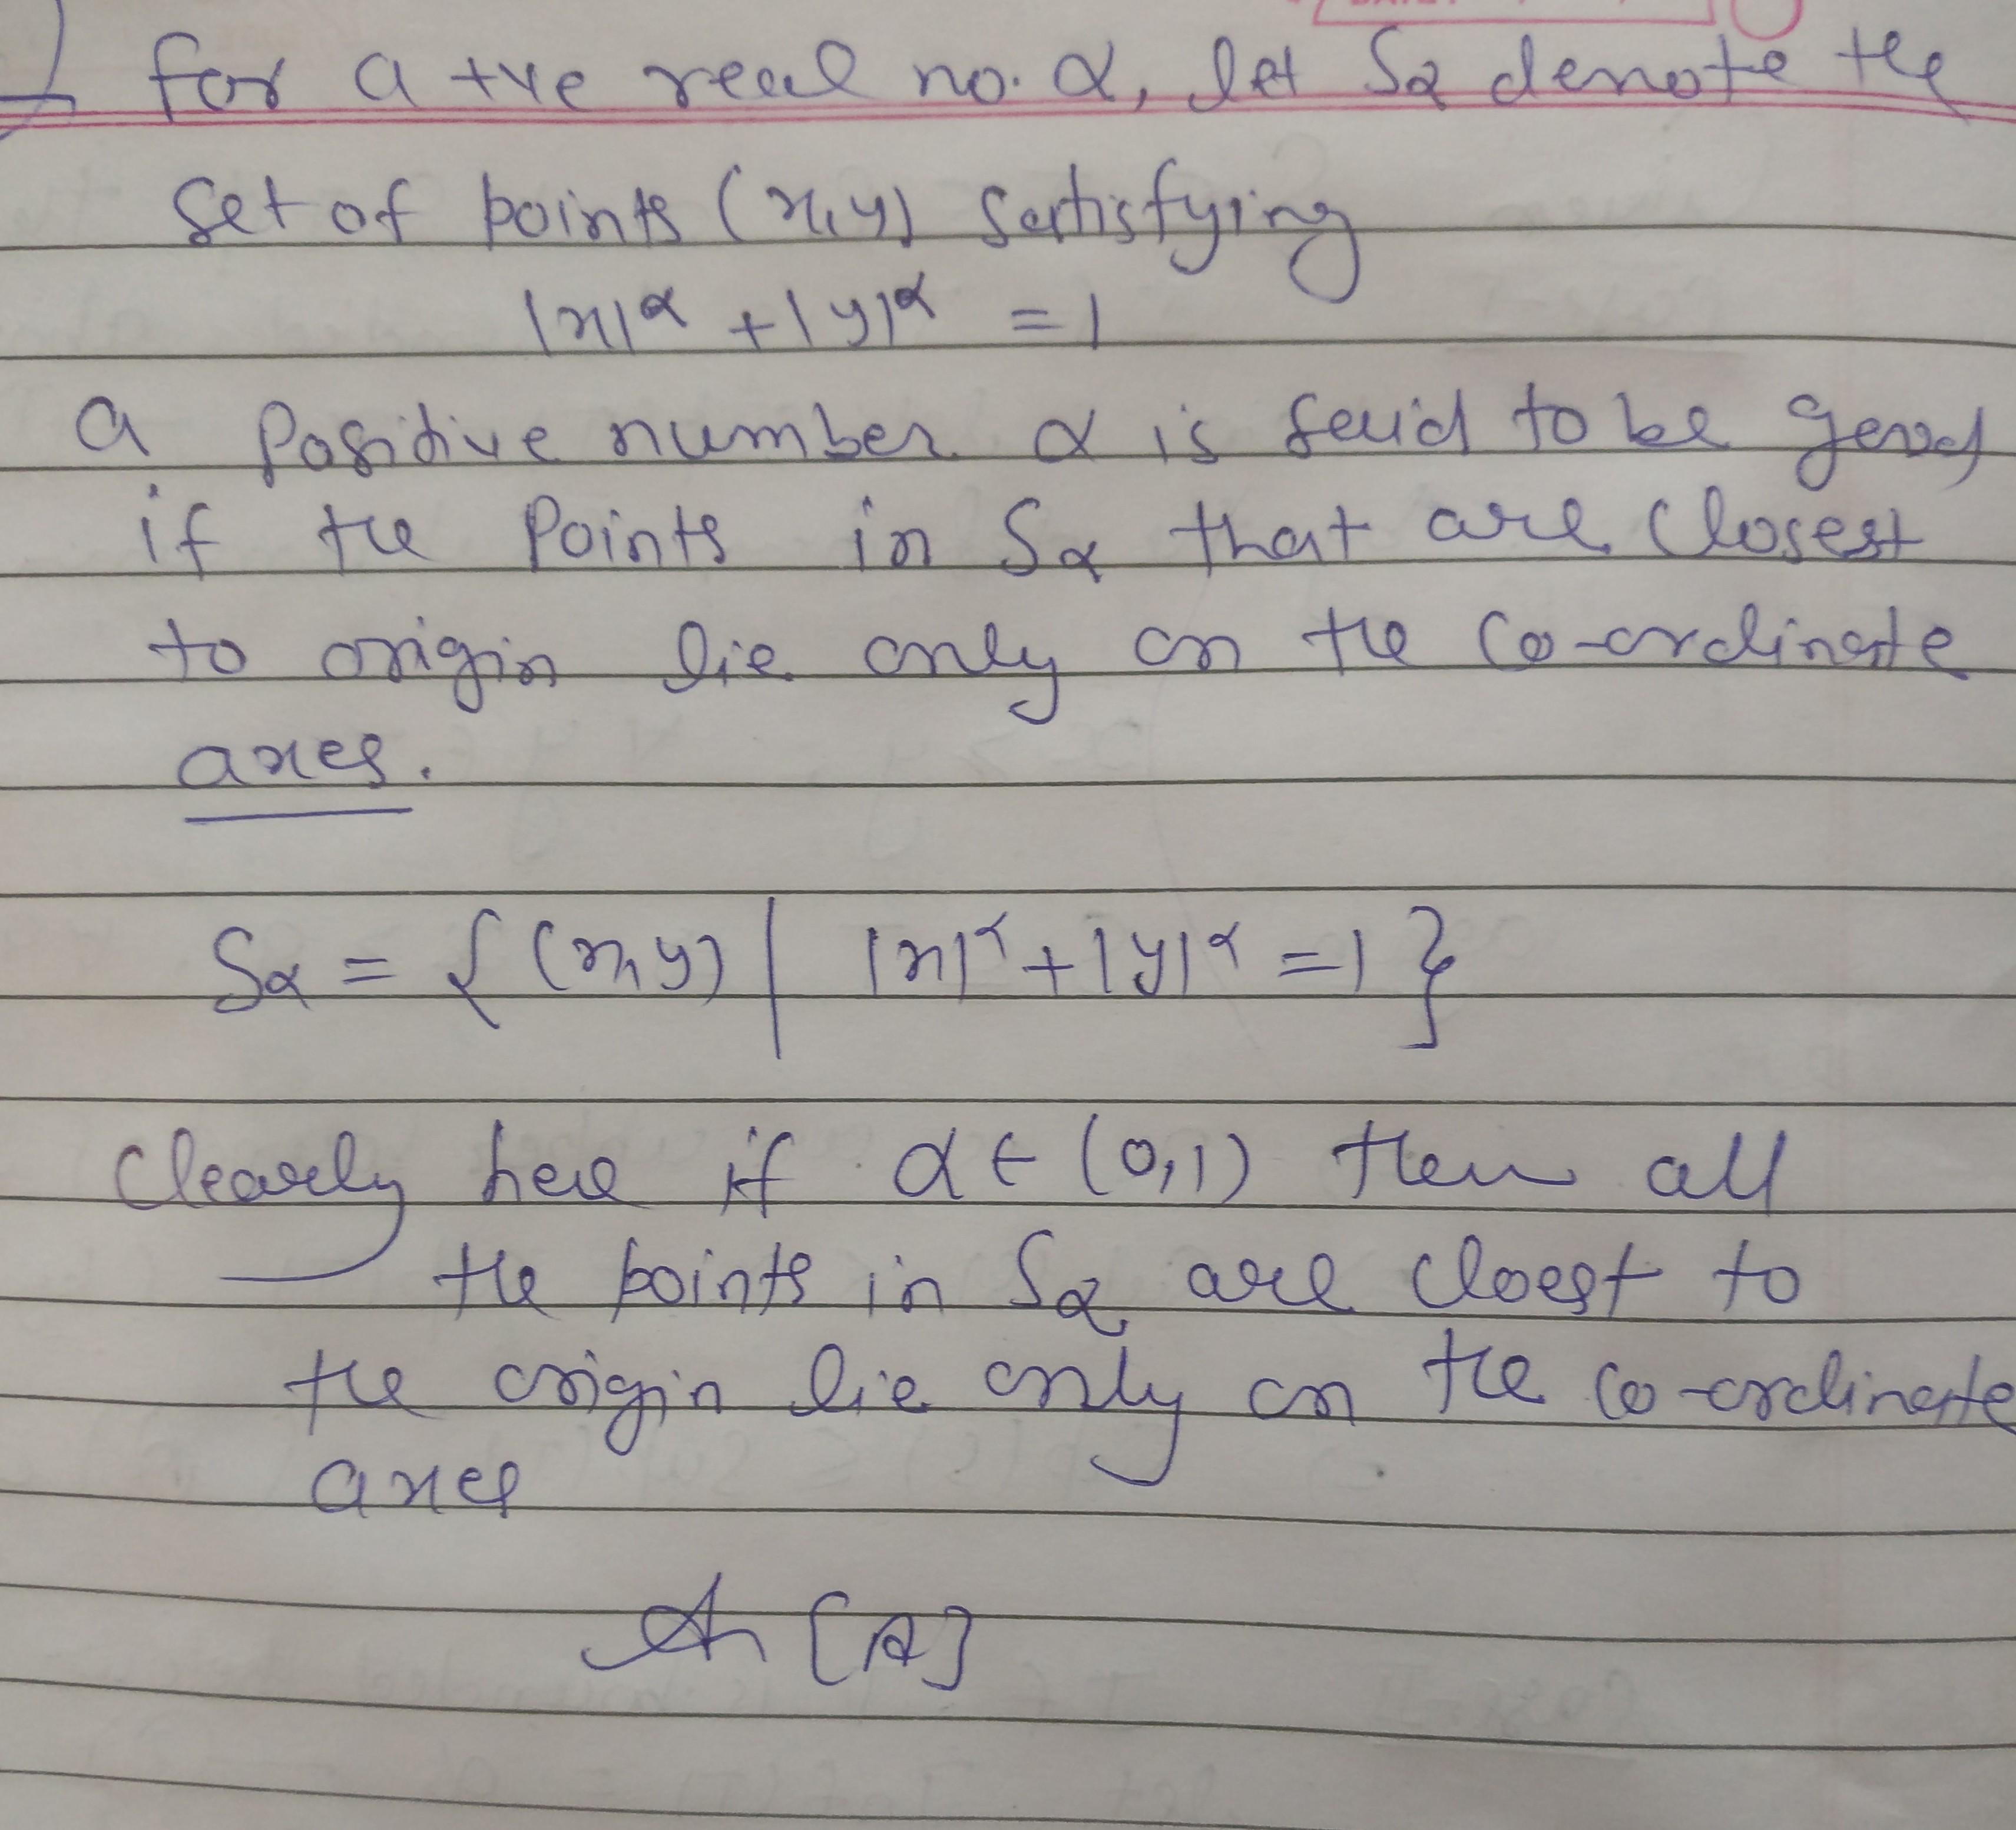 for a +ve real no. α, let Sα denote the
set of points (x,y) satisfying
|x|^α + |y|^α = 1
a Positive number α is said to be good
if the Points in Sα that are closest
to origin lie only on the co-ordinate
axes.
Sα = { (x,y) | |x|^α + |y|^α = 1 }
Clearly here if α ∈ (0,1) then all
the points in Sα are cloest to
the origin lie only on the co-ordinate
axes
An [A]